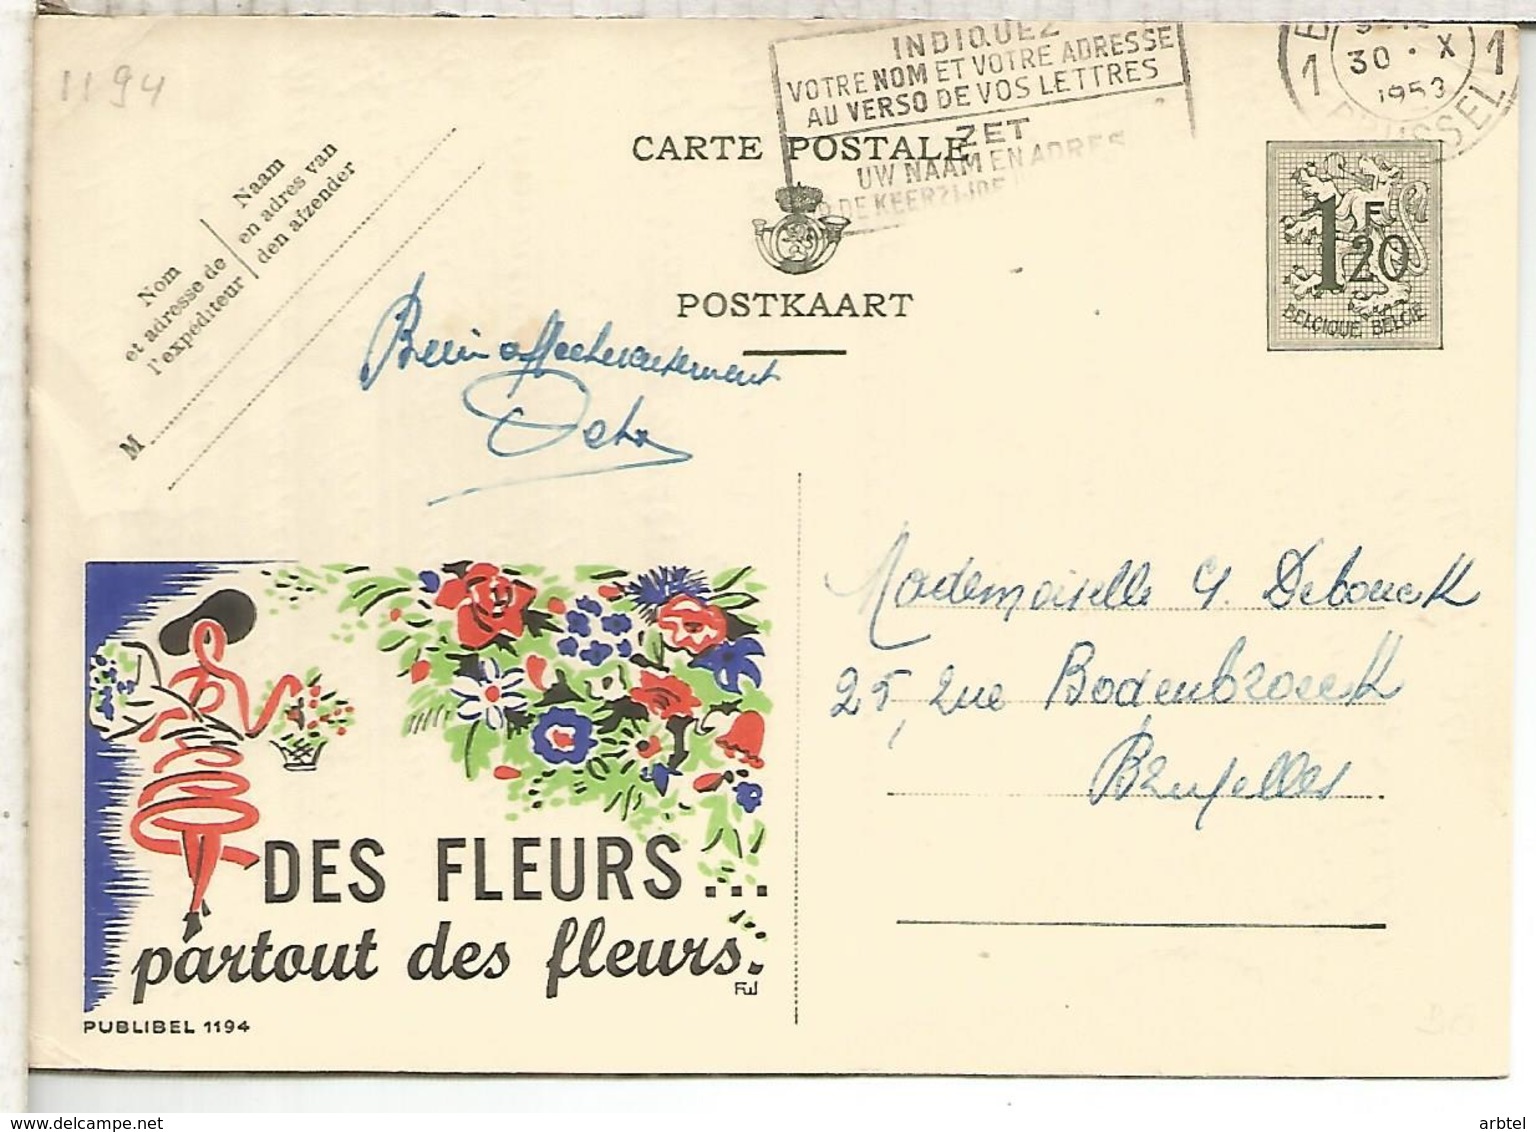 1194
INDIQUEZ
VOTRE NOM ET VOTRE ADRESSE
AU VERSO DE VOS LETTRES
ZET
UW NAAM EN ADRES
DE KEERZIJDE
30 · X
1953
BRUSSEL
1 1
CARTE POSTALE
POSTKAART
1 F 20
BELGIQUE BELGIË
Nom
et adresse de
l'expéditeur
Naam
en adres van
den afzender
M
Bien affectueusement
Mademoiselle G. Debouck
25, rue Bodenbroeck
Bruxelles
DES FLEURS...
partout des fleurs.
FW
PUBLIBEL 1194
www.delcampe.net
arbtel